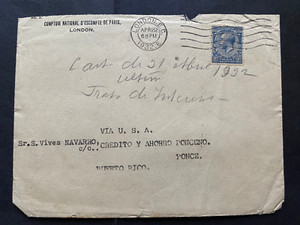 COMPTOIR NATIONAL D'ESCOMPTE DE PARIS,
LONDON.
LONDON. E.C.
APR 22
6 PM
1932
Cart de 21 Abril 1932
VIA U. S. A.
Sr. S. Vives NAVARRO,
c/o. CREDITO Y AHORRO PONCENO.
PONCE.
PUERTO RICO.